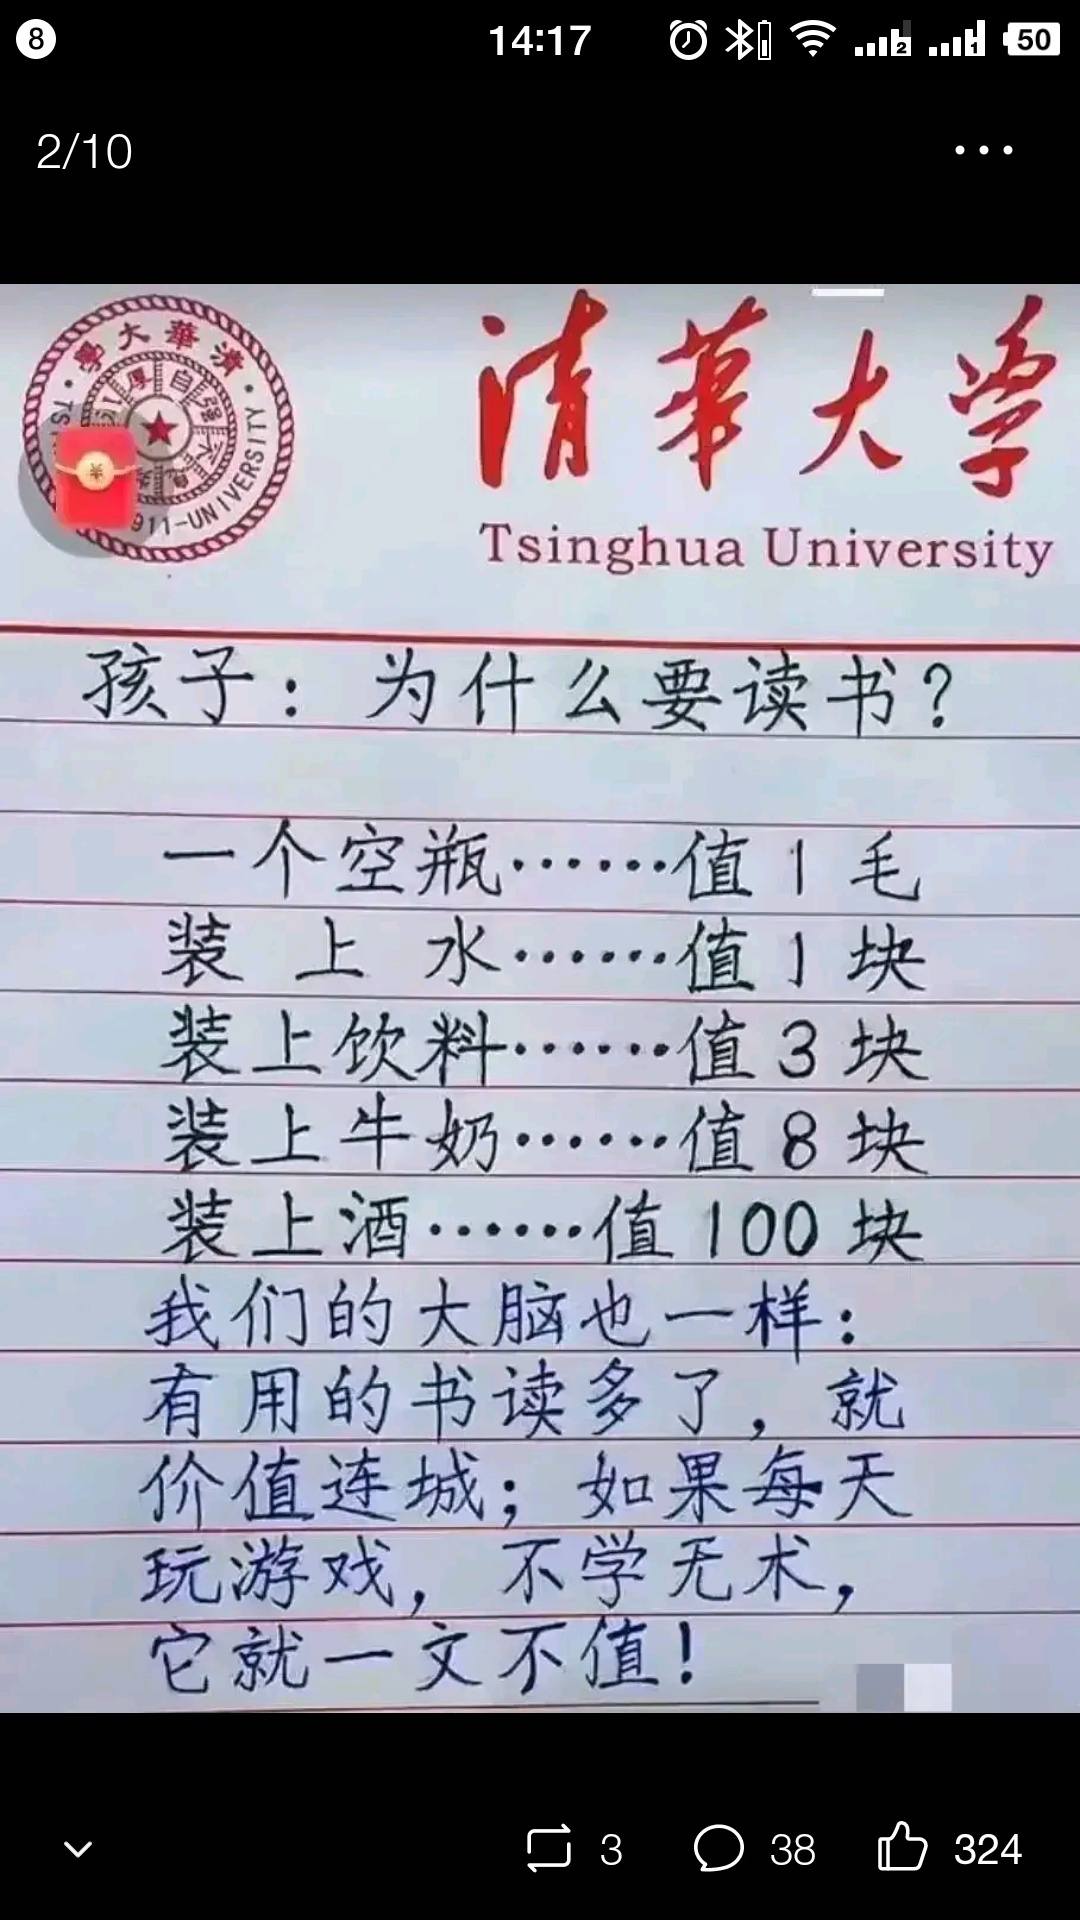 8
14:17
2
1
50
2/10
清華大學
自强不
厚
TS
911-UNIVERSITY
清华大学
Tsinghua University
孩子：为什么要读书？
一个空瓶……值1毛
装上水……值1块
装上饮料……值3块
装上牛奶……值8块
装上酒……值100块
我们的大脑也一样：
有用的书读多了，就
价值连城；如果每天
玩游戏，不学无术，
它就一文不值！
3
38
324